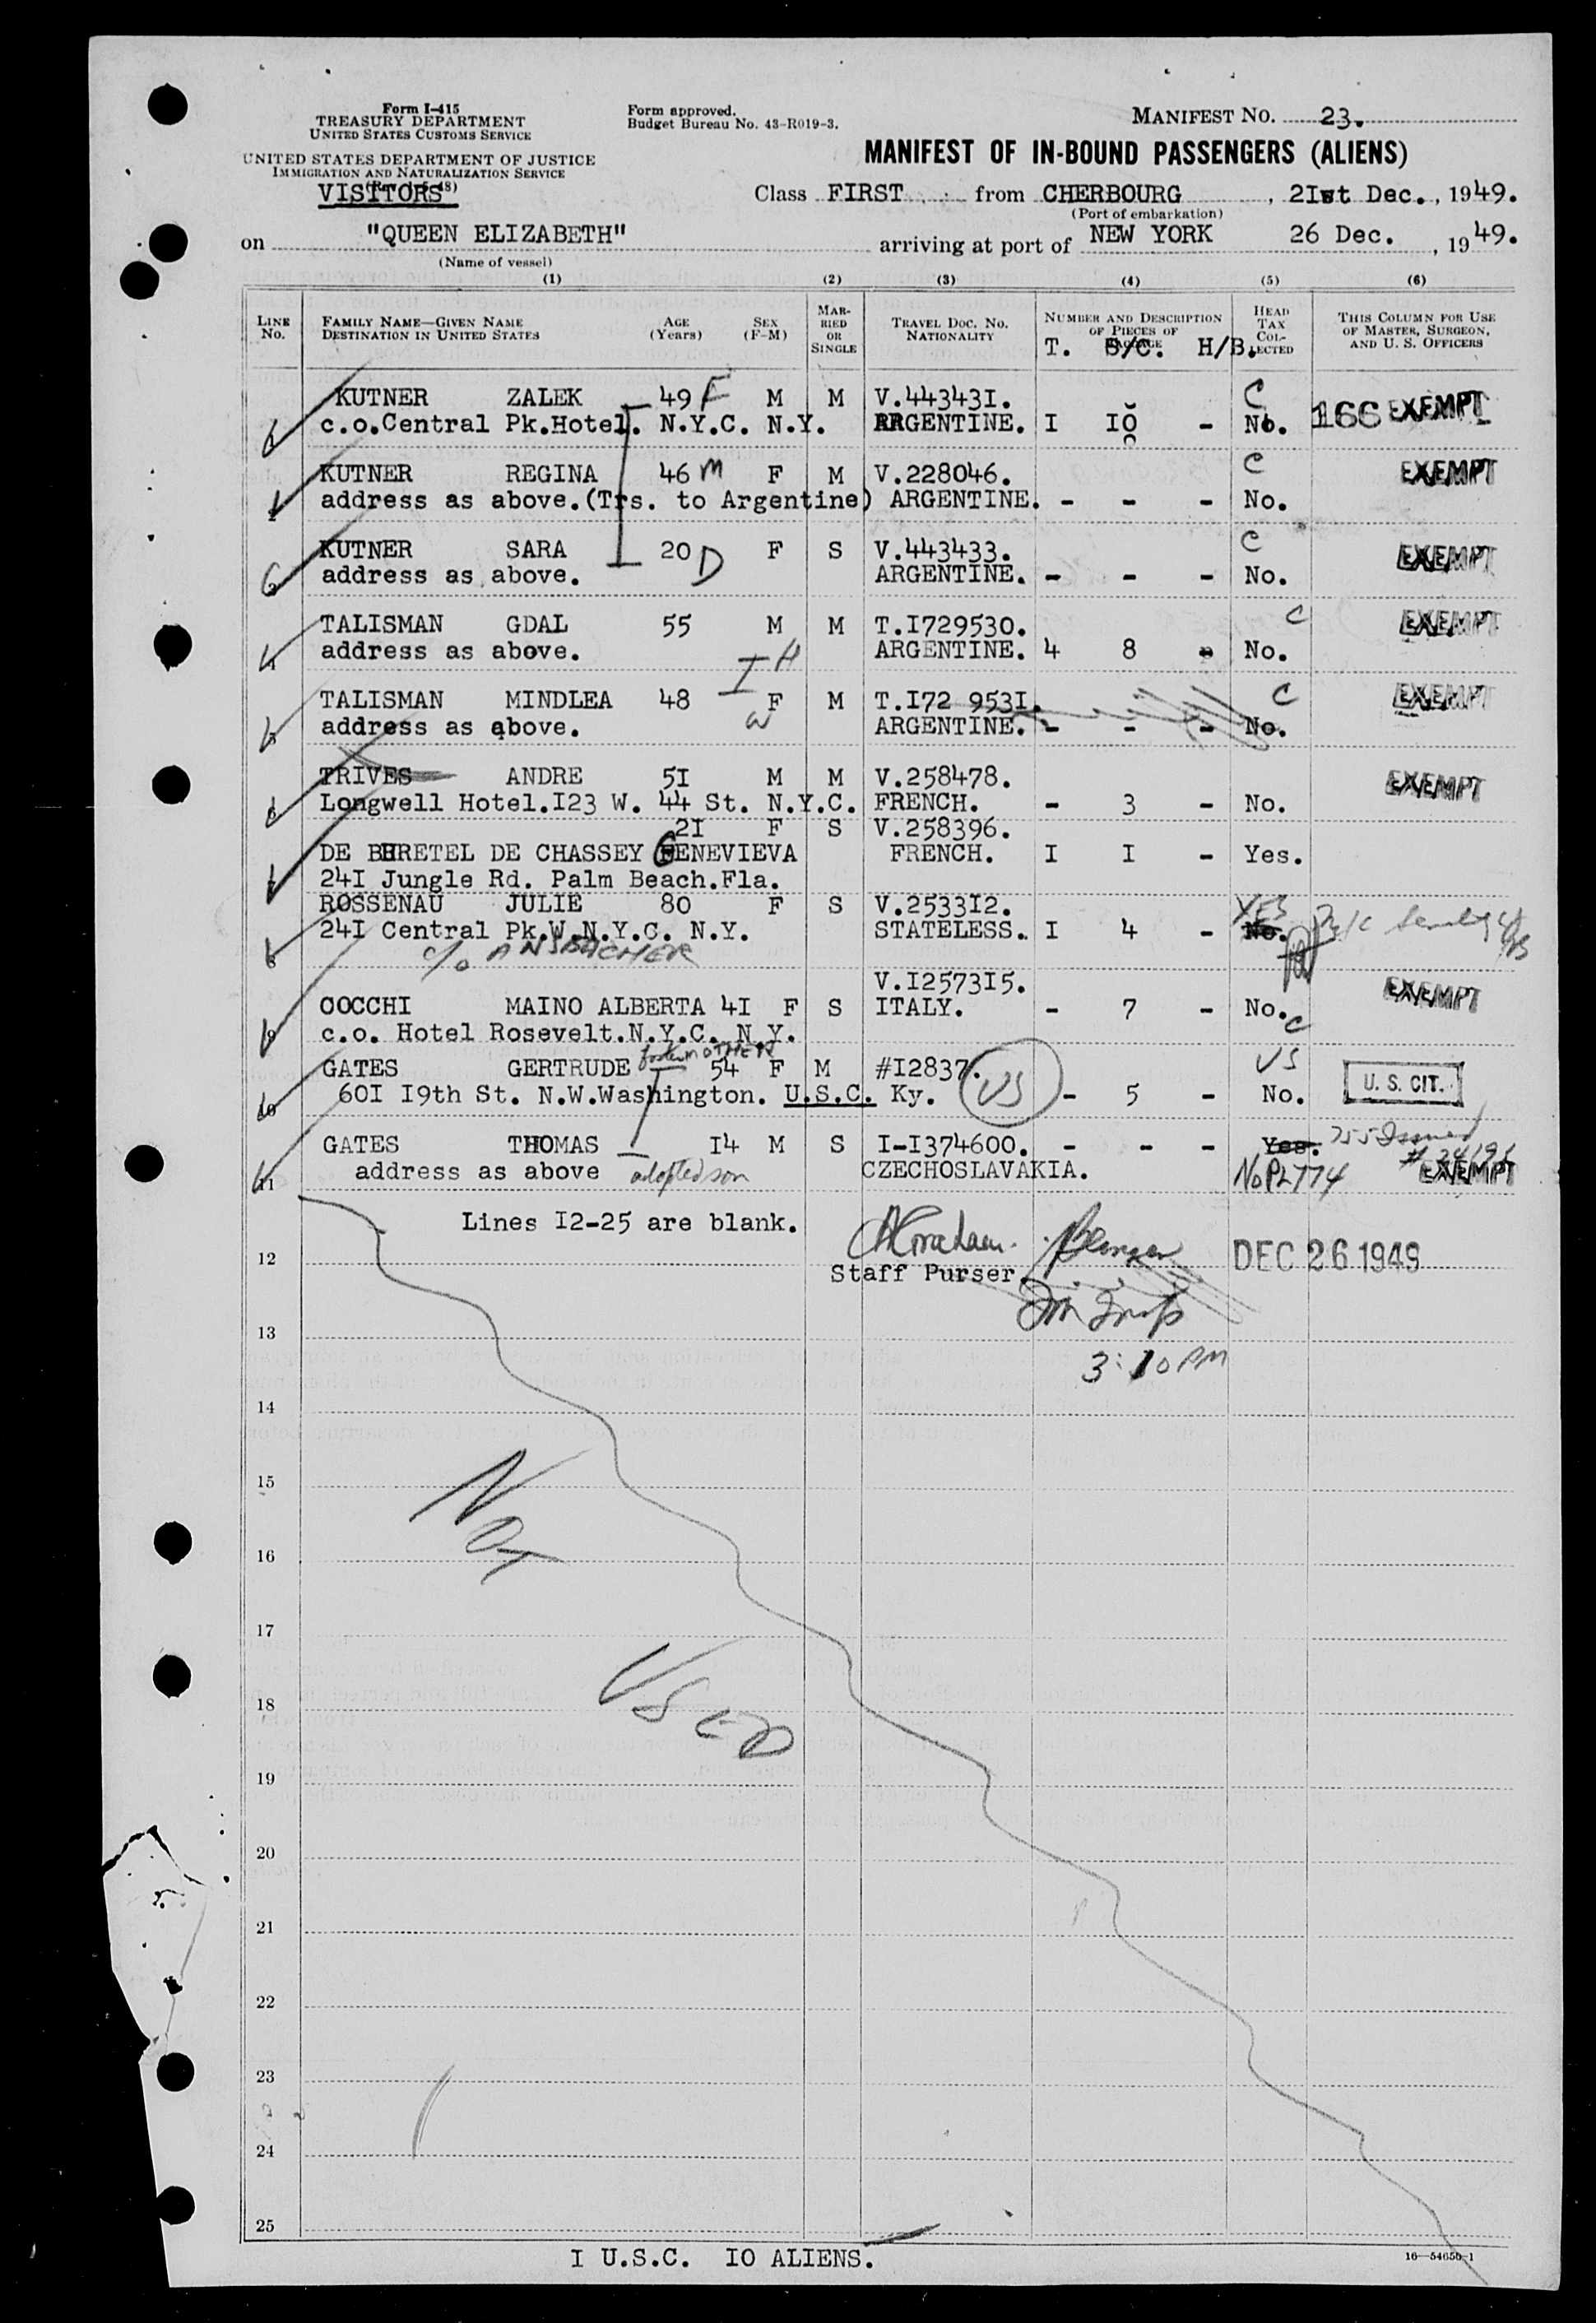 Form I-415
TREASURY DEPARTMENT
UNITED STATES CUSTOMS SERVICE
UNITED STATES DEPARTMENT OF JUSTICE
IMMIGRATION AND NATURALIZATION SERVICE
VISITORS
Form approved.
Budget Bureau No. 43-R019-3.
MANIFEST No. 23.
MANIFEST OF IN-BOUND PASSENGERS (ALIENS)
Class FIRST from CHERBOURG, 2Ist Dec., 1949.
(Port of embarkation)
on "QUEEN ELIZABETH" arriving at port of NEW YORK 26 Dec., 1949.
(Name of vessel)
(1) (2) (3) (4) (5) (6)
LINE No. FAMILY NAME—GIVEN NAME DESTINATION IN UNITED STATES AGE (Years) SEX (F-M) MARRIED OR SINGLE TRAVEL DOC. NO. NATIONALITY NUMBER AND DESCRIPTION OF PIECES OF HEAD TAX COLLECTED THIS COLUMN FOR USE OF MASTER, SURGEON, AND U. S. OFFICERS
T. S/C. H/B.
KUTNER ZALEK 49 F M M V.44343I. C
c.o.Central Pk.Hotel. N.Y.C. N.Y. ARGENTINE. I IO - No. 166 EXEMPT
KUTNER REGINA 46 M F M V.228046. C EXEMPT
address as above.(Trs. to Argentine) ARGENTINE. - - - No.
KUTNER SARA 20 D F S V.443433. C EXEMPT
address as above. ARGENTINE. - - - No.
TALISMAN GDAL 55 M M T.I729530. C EXEMPT
address as above. H ARGENTINE. 4 8 - No.
TALISMAN MINDLEA 48 F M T.I72 953I. C EXEMPT
address as above. W ARGENTINE. - - - No.
TRIVES ANDRE 5I M M V.258478. EXEMPT
Longwell Hotel.I23 W. 44 St. N.Y.C. FRENCH. - 3 - No.
2I F S V.258396.
DE BERRETEL DE CHASSEY GENEVIEVA FRENCH. I I - Yes.
24I Jungle Rd. Palm Beach.Fla.
ROSSENAU JULIE 80 F S V.2533I2. YES
24I Central Pk.W.N.Y.C. N.Y. STATELESS. I 4 - No.
c/o ANSBACHER
V.I2573I5. EXEMPT
COCCHI MAINO ALBERTA 4I F S ITALY. - 7 - No. C
c.o. Hotel Rosevelt.N.Y.C. N.Y.
foster MOTHER
GATES GERTRUDE 54 F M #I2837. US
60I I9th St. N.W.Washington. U.S.C. Ky. US - 5 - No. U. S. CIT.
GATES THOMAS I4 M S I-I374600. - - - Yes. 755 Issued
address as above adopted son CZECHOSLAVAKIA. No PL774 EXEMPT
11
Lines I2-25 are blank.
12
Staff Purser. DEC 26 1949
13
3:10 PM
14
15
NOT
16
17
USED
18
19
20
21
22
23
24
25
I U.S.C. IO ALIENS.